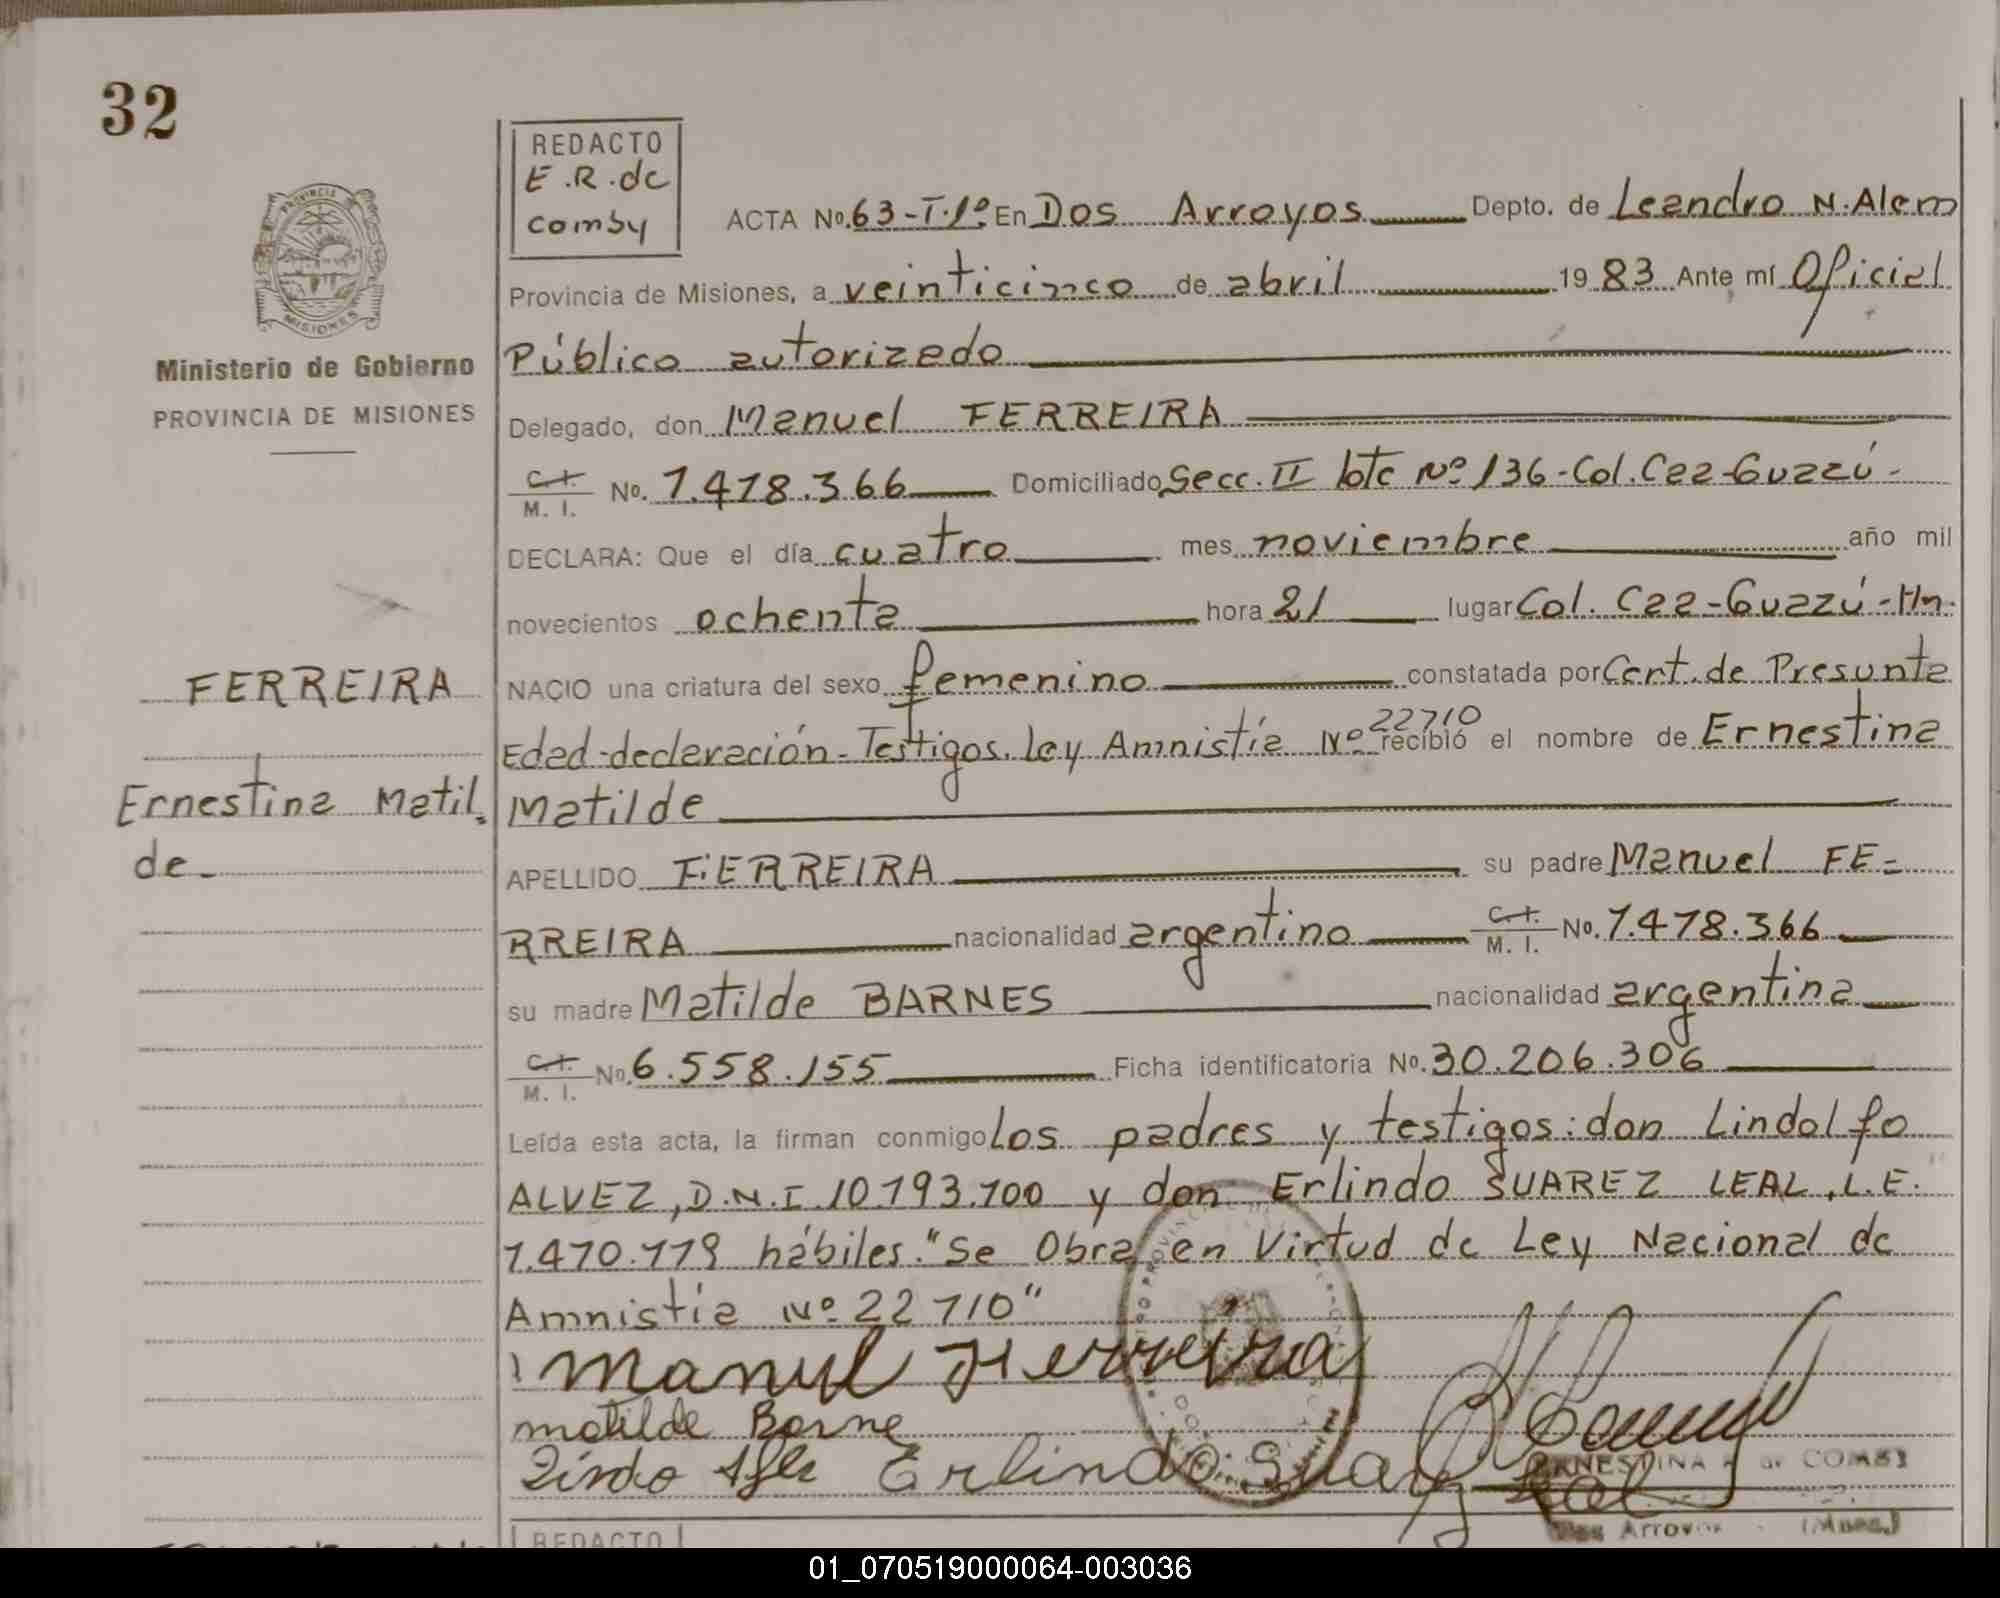 32
PROVINCIA
MISIONES
Ministerio de Gobierno
PROVINCIA DE MISIONES
FERREIRA
Ernestina Matil.
de
REDACTO
E.R.de
Comby
ACTA No. 63-T.1º En Dos Arroyos Depto. de Leandro N. Alem
Provincia de Misiones, a veinticinco de abril 19 83 Ante mí Oficial
Público autorizado
Delegado, don Manuel FERREIRA
C.I. M. I. No. 7.478.366 Domiciliado Secc. II lote Nº 136-Col. Caa-Guazú-
DECLARA: Que el día cuatro mes noviembre año mil
novecientos ochenta hora 21 lugar Col. Caa-Guazú-Mn.
NACIO una criatura del sexo femenino constatada por Cert. de Presunta
Edad-declaración-Testigos. Ley Amnistía Nº 22710 recibió el nombre de Ernestina
Matilde
APELLIDO FERREIRA su padre Manuel FE=
RREIRA nacionalidad argentino C.I. M. I. No. 7.478.366
su madre Matilde BARNES nacionalidad argentina
C.I. M. I. No. 6.558.155 Ficha identificatoria No. 30.206.306
Leída esta acta, la firman conmigo los padres y testigos: don Lindolfo
ALVEZ, D.N.I. 10.793.700 y don Erlindo SUAREZ LEAL, L.E.
7.470.779 hábiles. "Se Obra en Virtud de Ley Nacional de
Amnistía Nº 22710"
Manuel Ferreira
matilde Barne
Erlindo Suarez Leal
ERNESTINA R. de COMBY
Dos Arroyos (Mnes.)
REDACTO
01_070519000064-003036